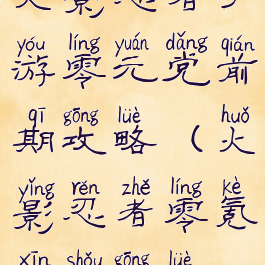 yóu líng yuán dǎng qián
游零元党前
qī gōng lüè huǒ
期攻略(火
yǐng rěn zhě líng kè
影忍者零氪
xīn shǒu gōng lüè